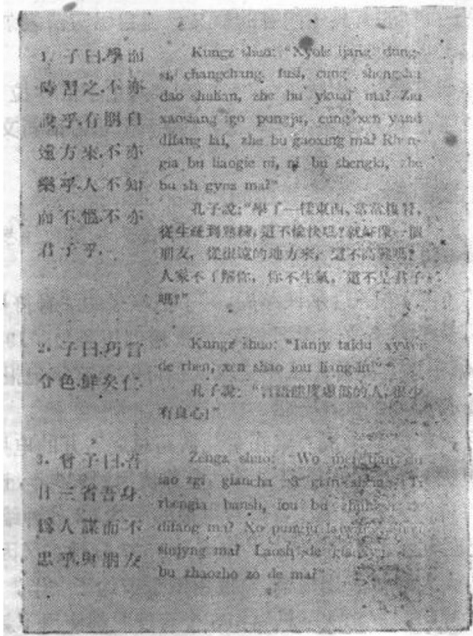 1. 子曰,學而
時習之,不亦
說乎,有朋自
遠方來,不亦
樂乎,人不知
而不慍,不亦
君子乎.
Kungz shuo: "Xyole ijang dung-
si, changchang fusi, cung
dao shulian, zhe bu ykuai ma? Ziu
xaosiang igo pungju, cung xen yand
difang lai, zhe bu gaoxing ma? Rhen-
gia bu liaogie ni, ni bu shengki, zhe
bu sh gynz ma?"
孔子說:"學了一樣東西、常常復習,
從生疏到熟練,這不愉快嗎?就好像一個
朋友,從很遠的地方來,這不高興嗎?
人家不了解你,你不生氣,這不是君子
嗎?"
2. 子曰,巧言
令色,鮮矣仁.
Kungz shuo: "Ianjy taidu
de rhen, xen shao iou liangsin!"
孔子說:"言語態度虛僞的人,很少
有良心!"
3. 曾子曰,吾
日三省吾身,
爲人謀而不
忠乎,與朋友
Zengz shuo: "Wo mei tian
iao zgi giancha
rhengia bansh, iou bu
difang ma? Xo pungju
sinjyng ma? Laosh
bu zhaozho zo de ma?"